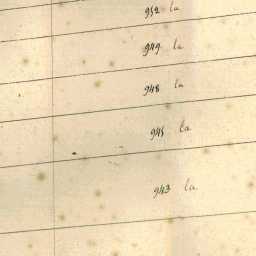 952 la
949 la
948 la
945 la
943 la